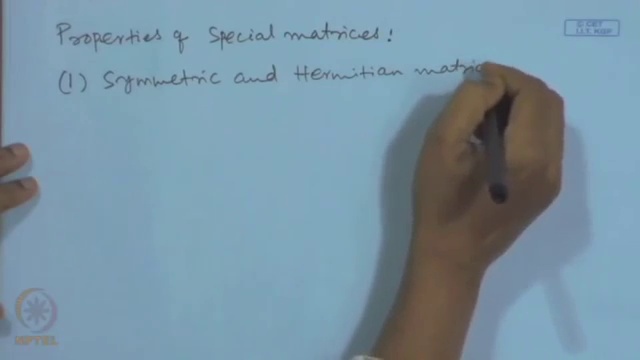 © CET
I.I.T. KGP
Properties of Special matrices:
(1) Symmetric and Hermitian matric
NPTEL